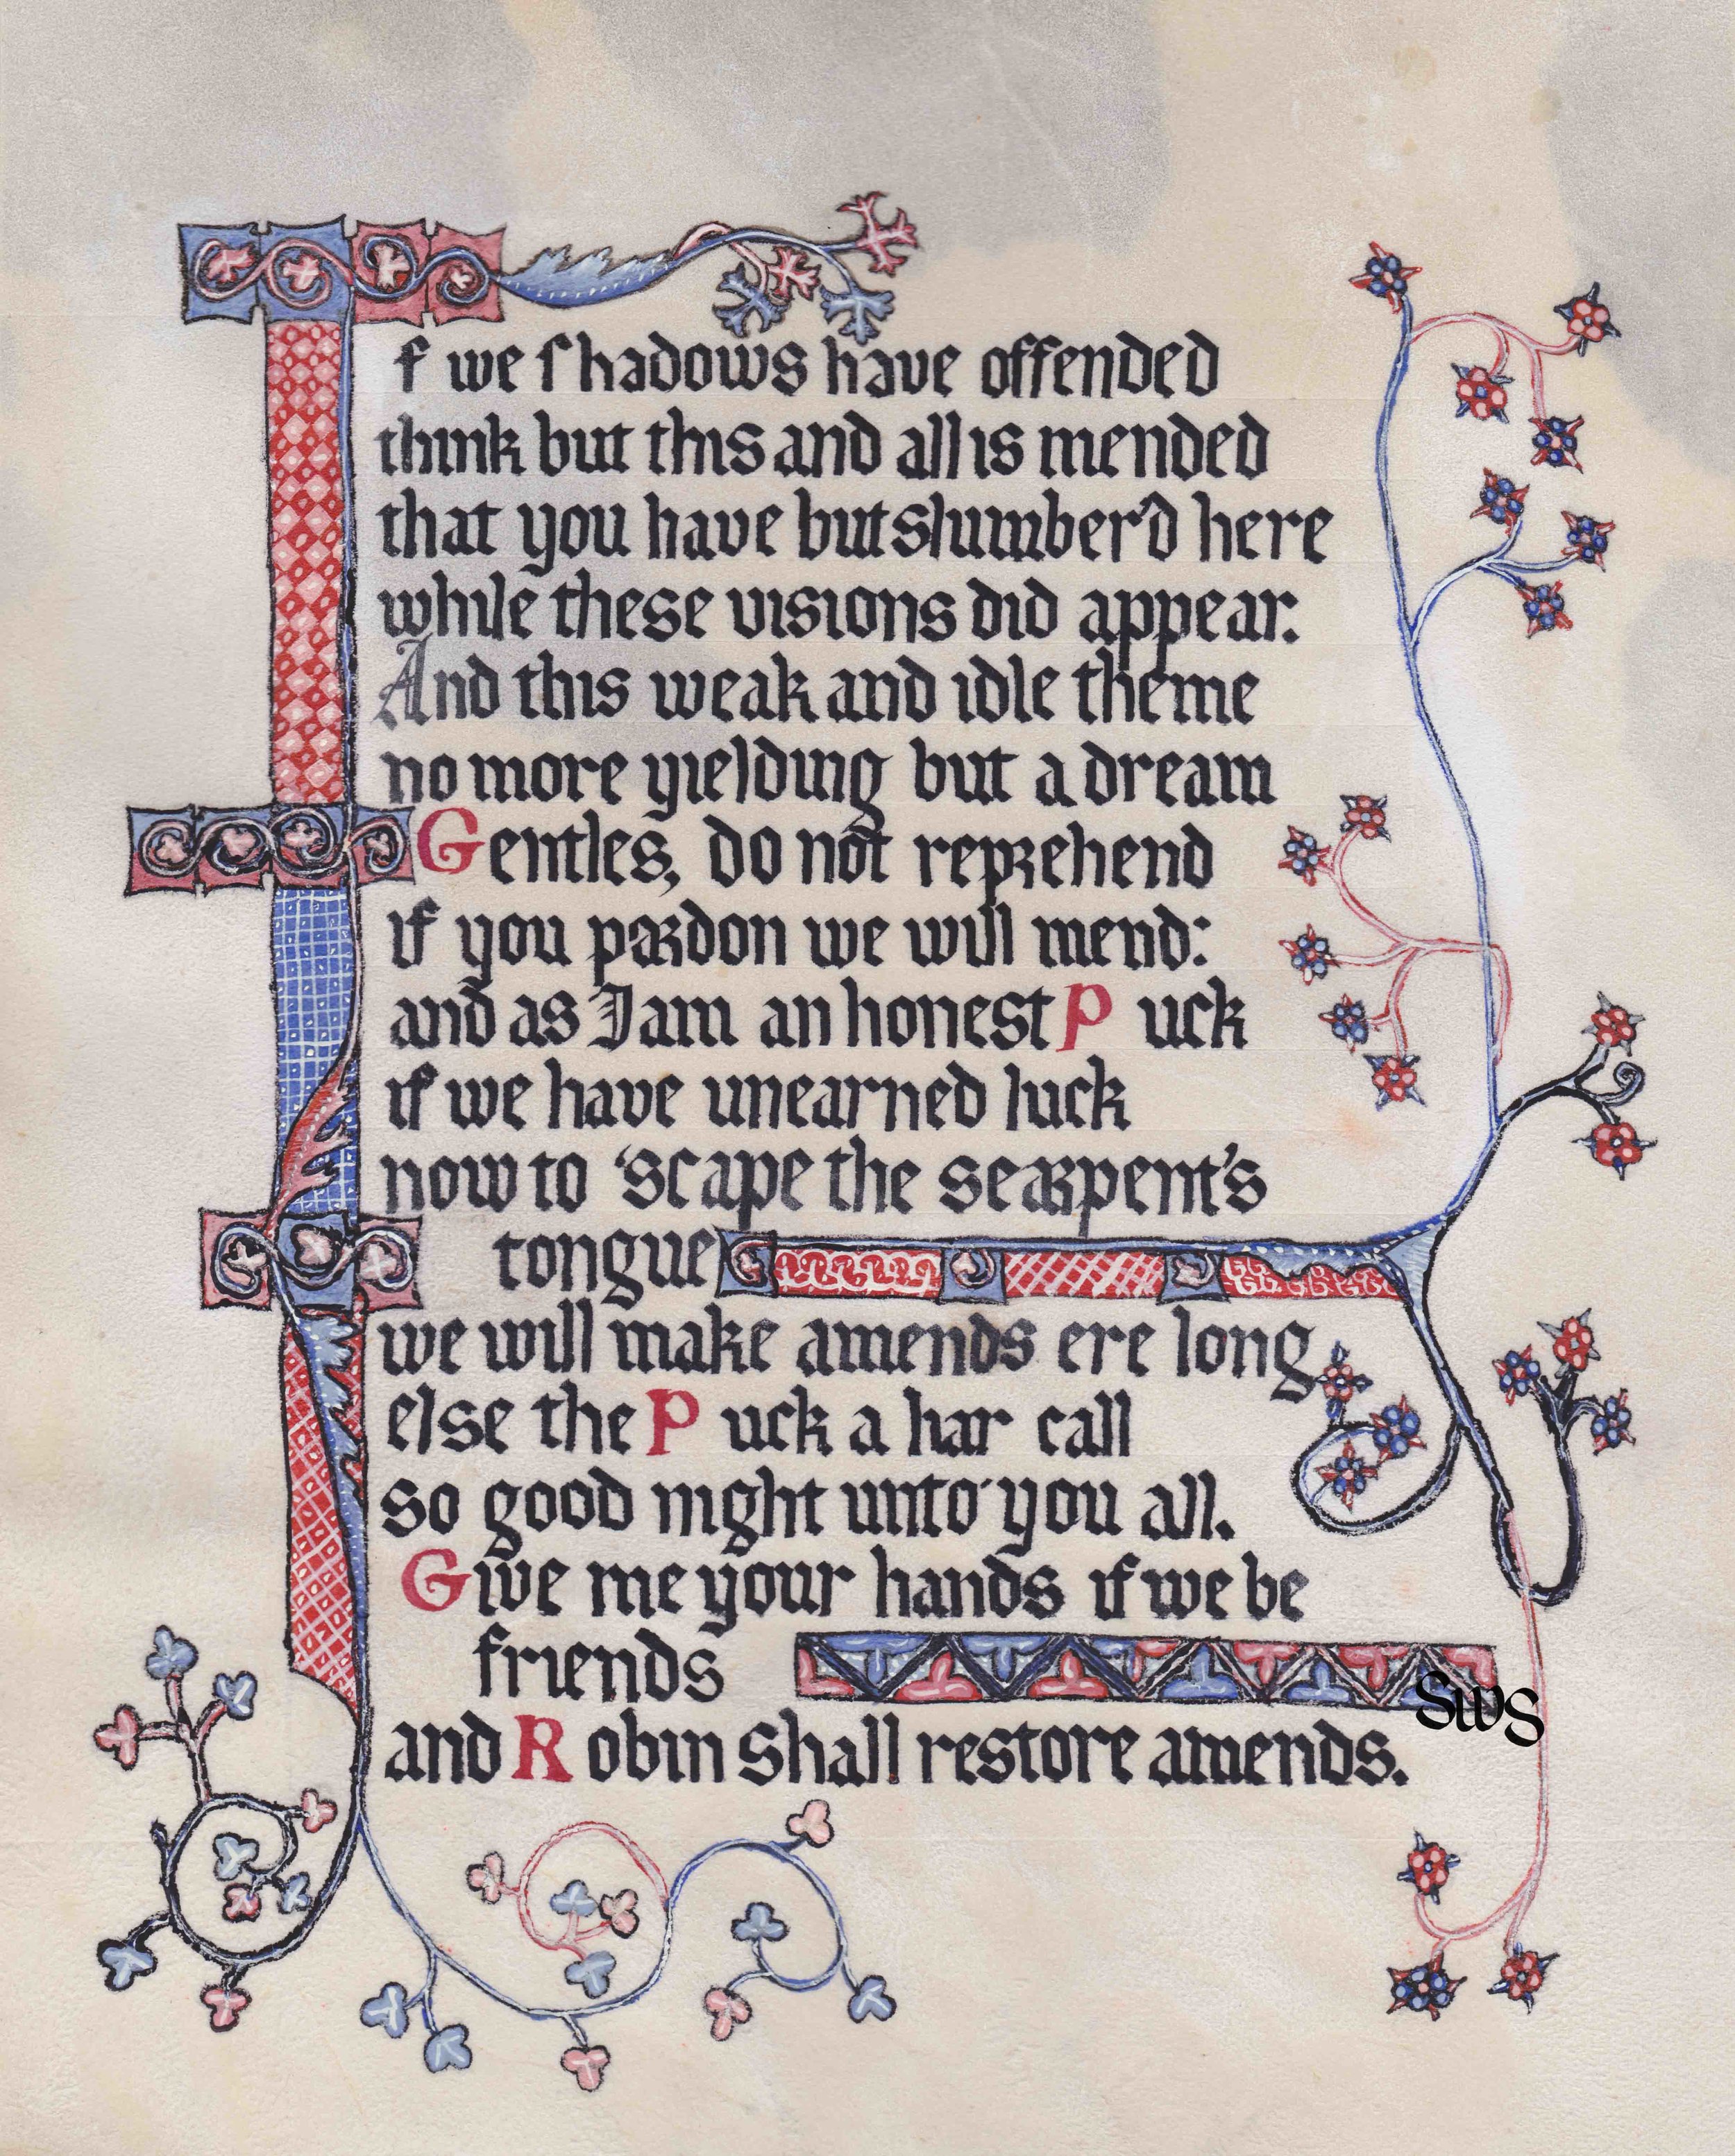 If we shadows have offended
think but this and all is mended
that you have but slumber'd here
while these visions did appear.
And this weak and idle theme
no more yielding but a dream
Gentles, do not reprehend
if you pardon we will mend:
and as I am an honest Puck
if we have unearned luck
now to 'scape the serpent's
tongue
we will make amends ere long
else the Puck a liar call
so good night unto you all.
Give me your hands if we be
friends
SWS
and Robin shall restore amends.